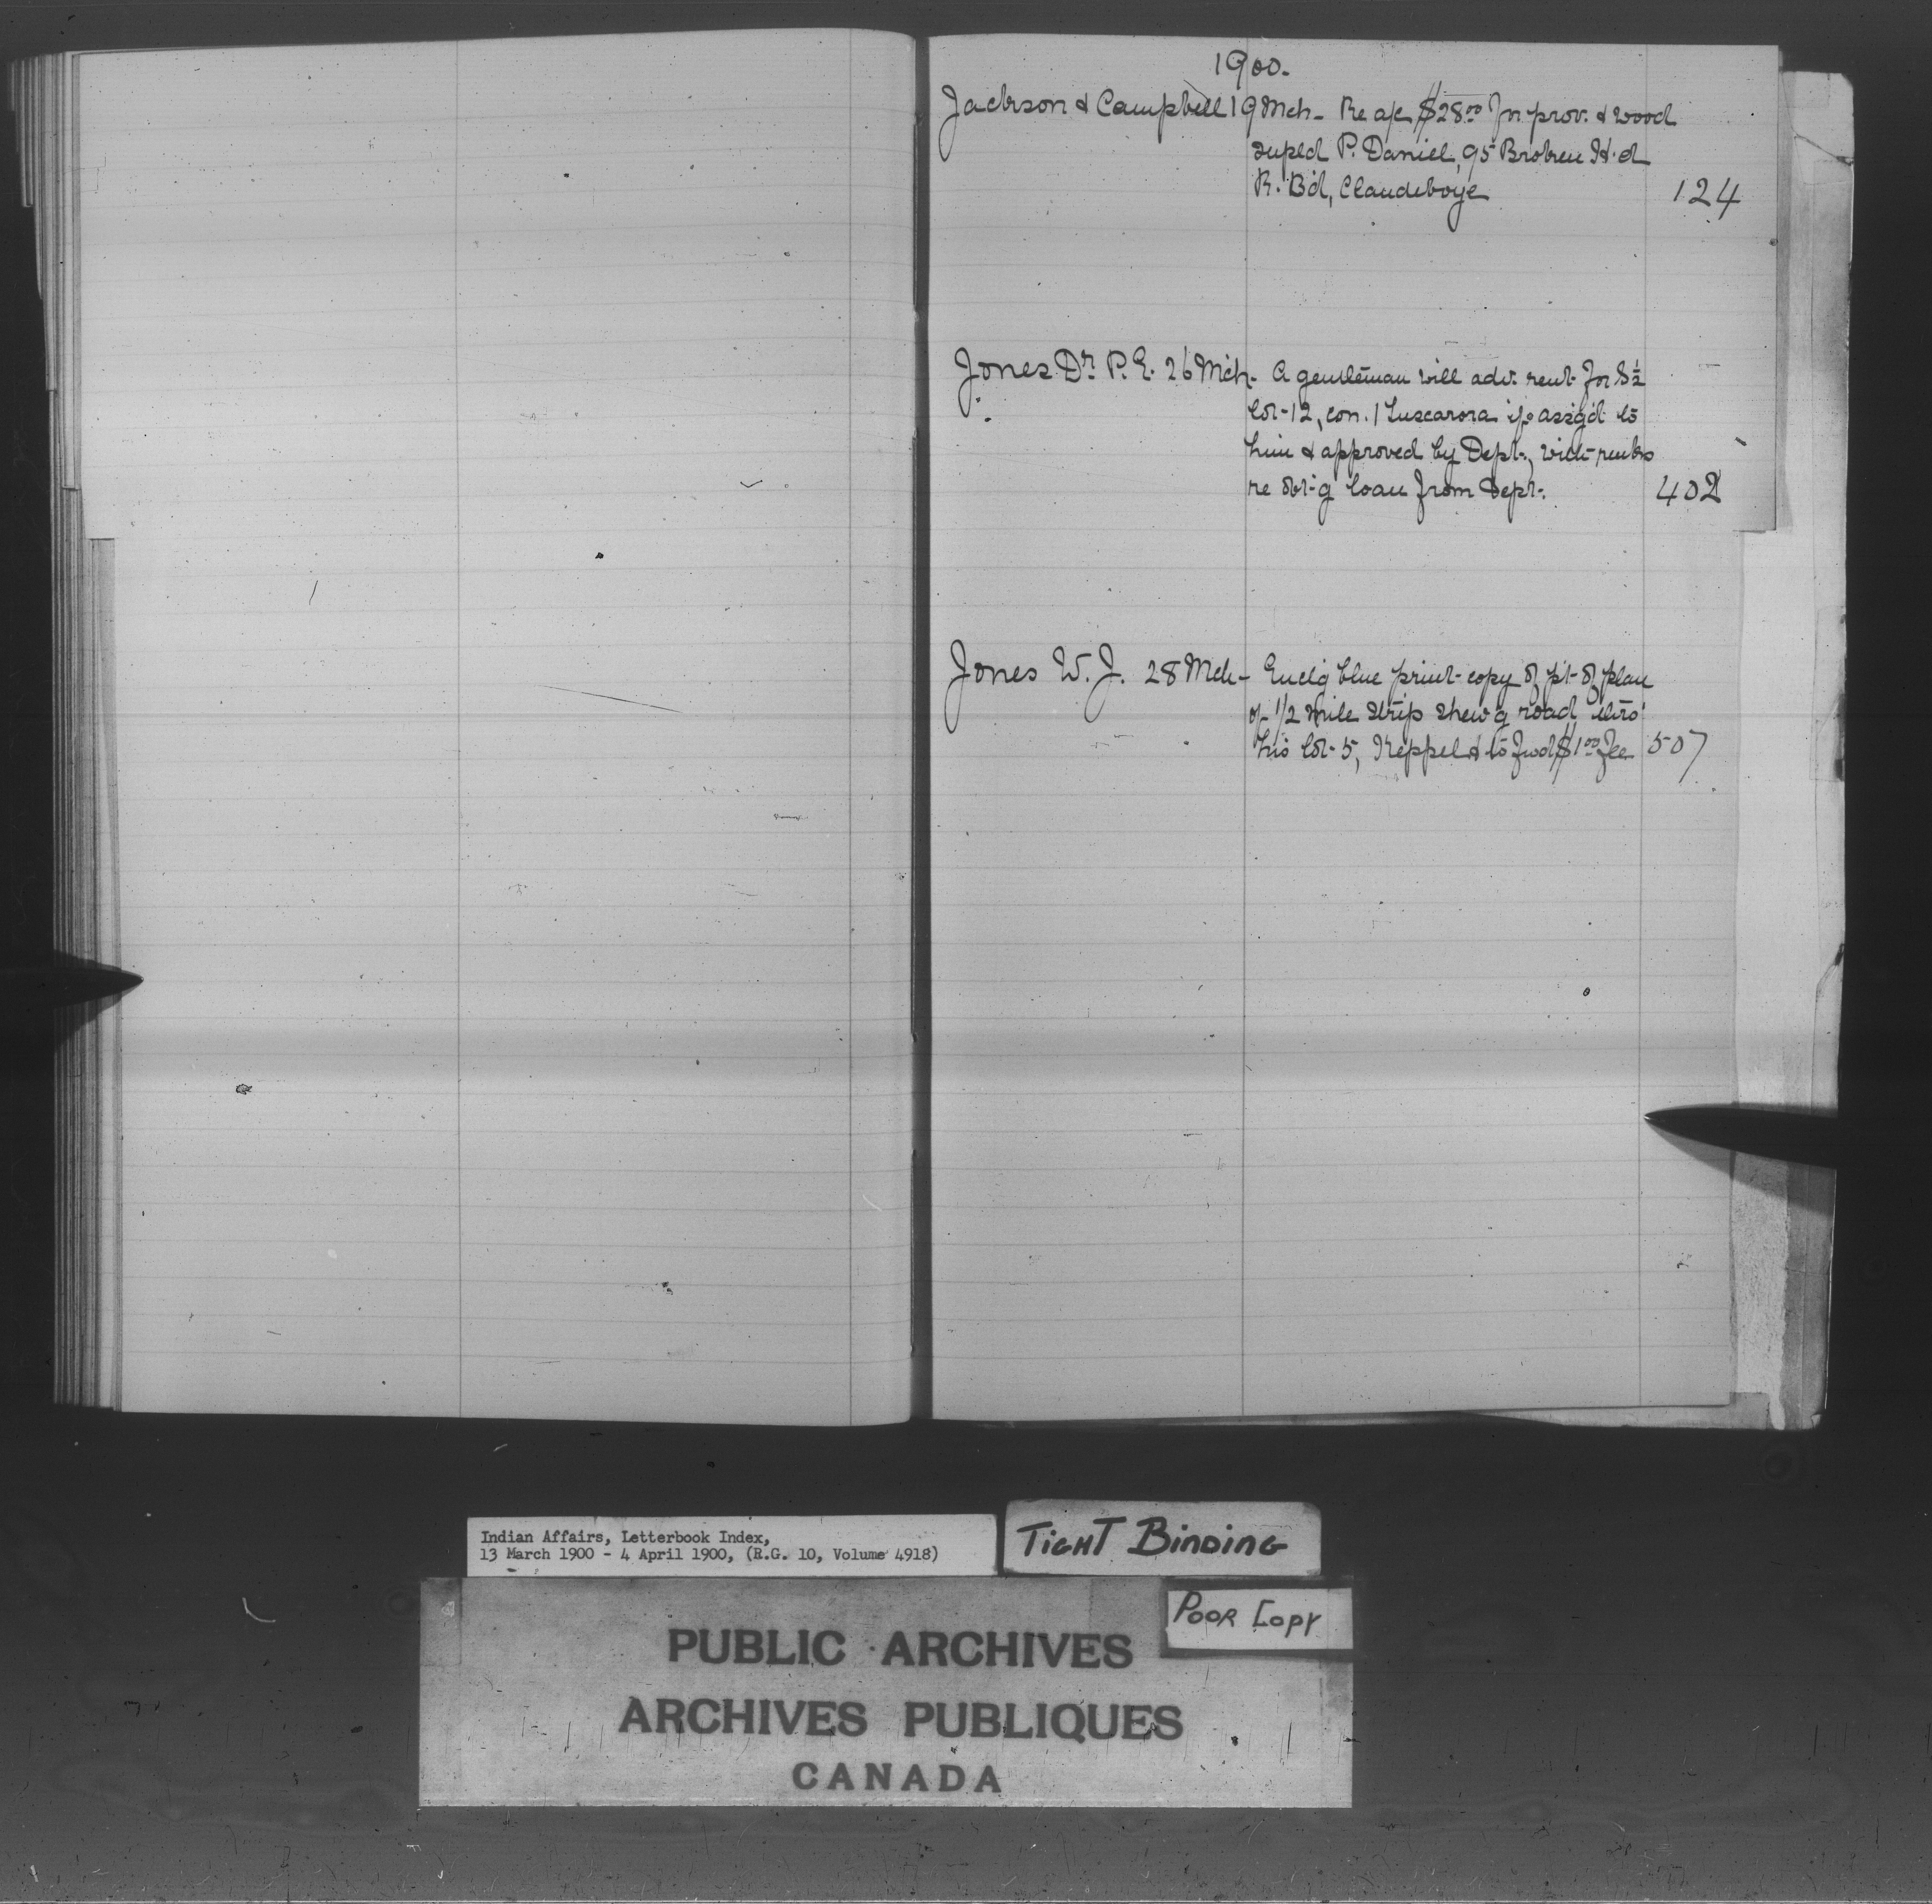 1900.
Jackson & Campbell 19 Mch - Re a/c $28.00 for prov. & wood
supld P. Daniel, 95 Broken H'd
R. B'd, Clandeboye 124
Jones Dr. P. E. 26 Mch - A gentleman will adv. rent for S ½
lot 12, con. 1 Tuscarora if assg'd to
him & approved by Dept.,
re obt'g loan from Dept. 402
Jones W. J. 28 Mch - Encl'g blue print copy of pt of plan
of 1/2 mile strip shew'g road thro'
his lot 5, Keppel & to fwd $1.00 fee 507
Indian Affairs, Letterbook Index,
13 March 1900 - 4 April 1900, (R.G. 10, Volume 4918)
TIGHT BINDING
POOR COPY
PUBLIC ARCHIVES
ARCHIVES PUBLIQUES
CANADA